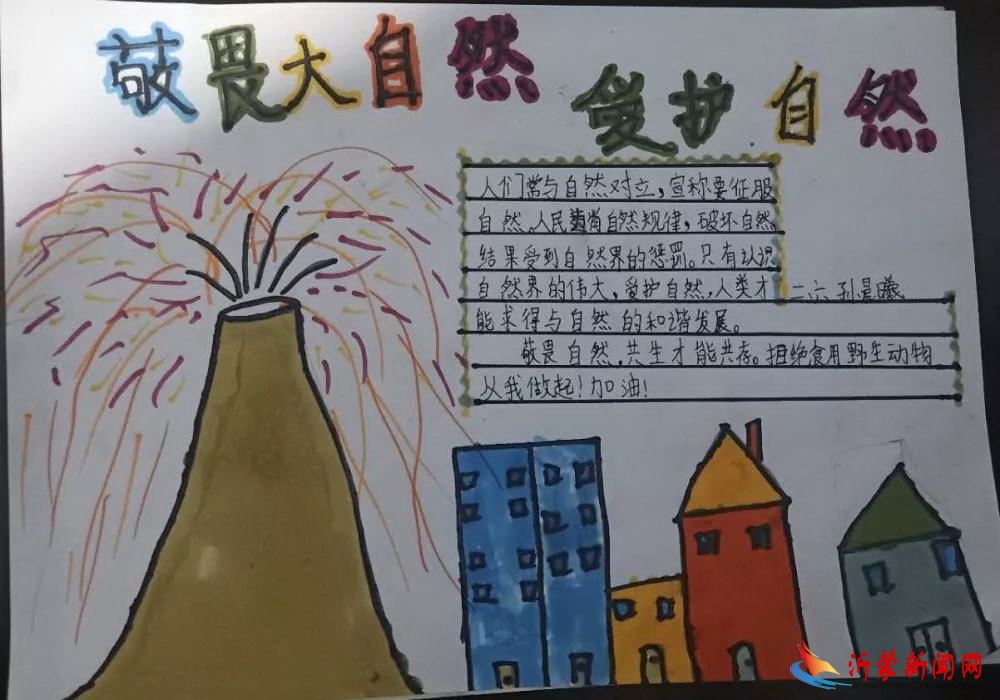 敬畏大自然
爱护自然
人们常与自然对立，宣称要征服
自然。人民违背自然规律，破坏自然
结果受到自然界的惩罚。只有认识
自然界的伟大，爱护自然，人类才
二六 孙晨曦
能求得与自然的和谐发展。
敬畏自然，共生才能共存。拒绝食用野生动物
从我做起！加油！
沂蒙新闻网